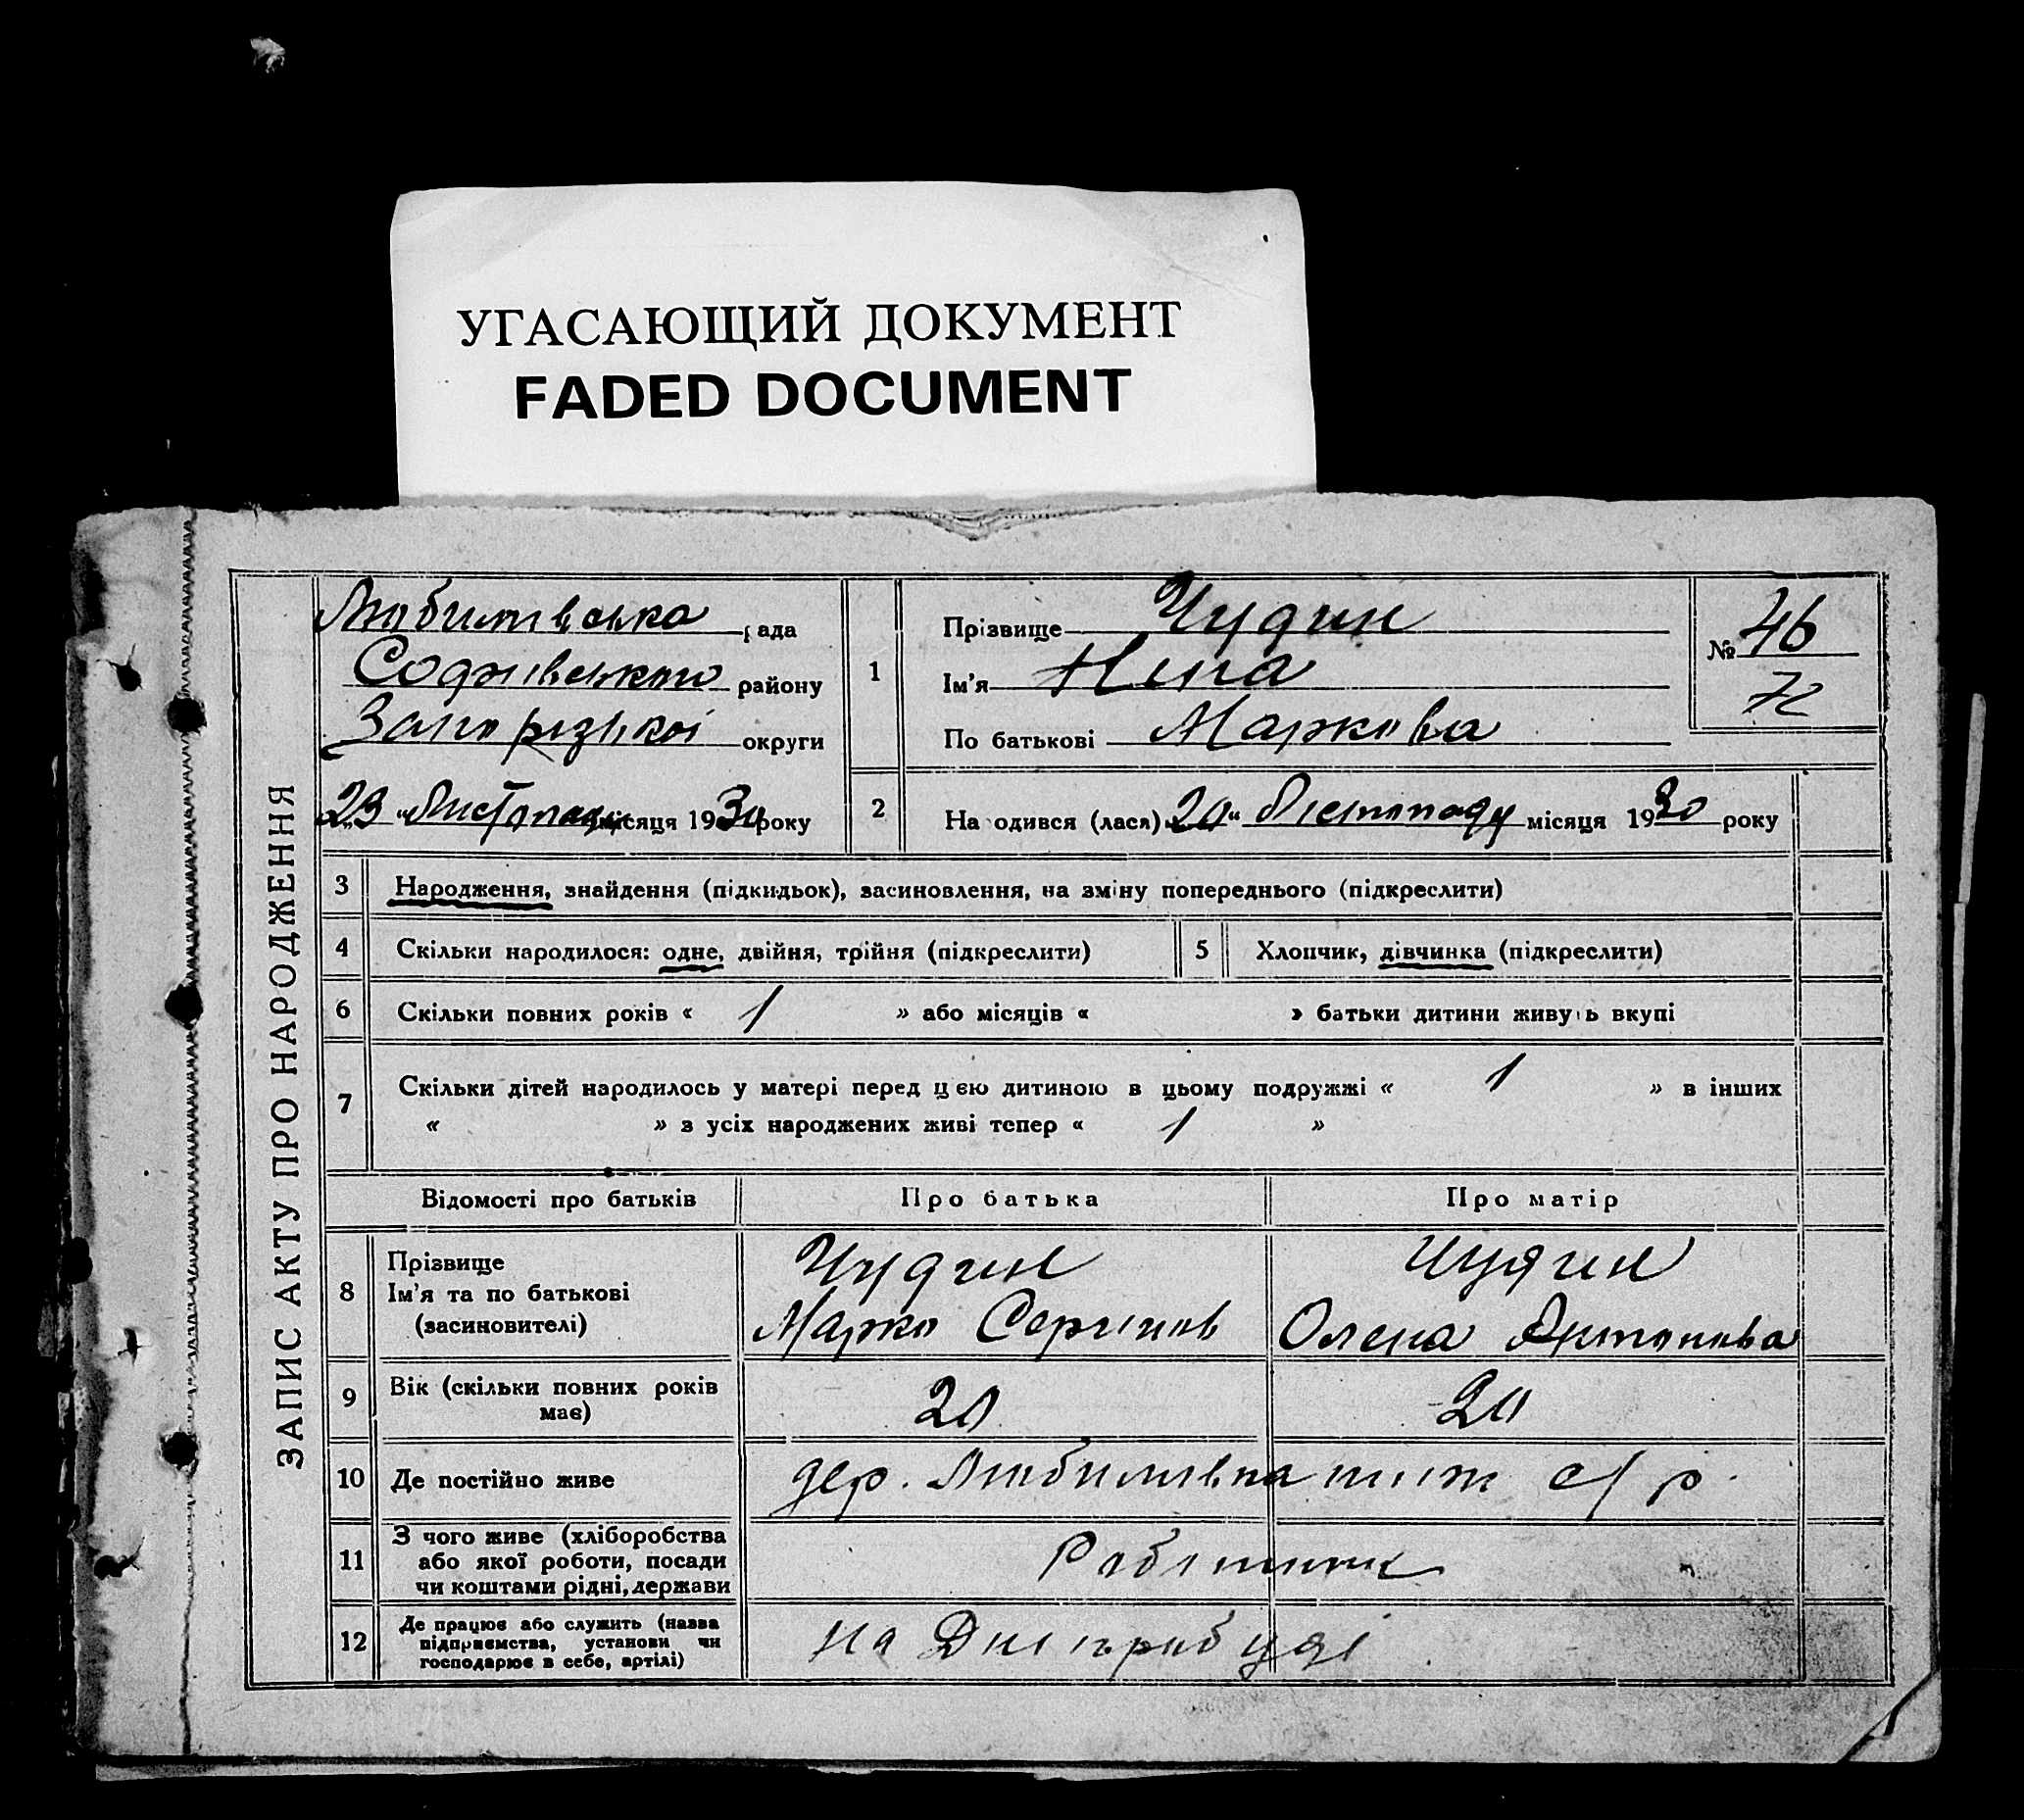 УГАСАЮЩИЙ ДОКУМЕНТ
FADED DOCUMENT
ЗАПИС АКТУ ПРО НАРОДЖЕННЯ
Любимівська рада
району
Запорізької округи
23 Листопаду місяця 1930 року
1
Прізвище Чудин
Ім'я Нина
По батькові Маркова
№ 46
72
2
На одився (лася) 20 Листопаду місяця 1930 року
3 Народження, знайдення (підкидьок), засиновлення, на зміну попереднього (підкреслити)
4 Скільки народилося: одне, двійня, трійня (підкреслити)
5 Хлопчик, дівчинка (підкреслити)
6 Скільки повних років « 1 » або місяців « » батьки дитини живуть вкупі
7 Скільки дітей народилось у матері перед цією дитиною в цьому подружжі « 1 » в інших
« » з усіх народжених живі тепер « 1 »
Відомості про батьків Про батька Про матір
8 Прізвище
Ім'я та по батькові
(засиновителі)
Чудин
Марко Сергиїв
Чудин
Олена Антонова
9 Вік (скільки повних років
має)
20 20
10 Де постійно живе дер. Любимівка с/р.
11 З чого живе (хліборобства
або якої роботи, посади
чи коштами рідні, держави
Робітник
12 Де працює або служить (назва
підприємства, установи чи
господарює в себе, артілі)
на Дніпробуді